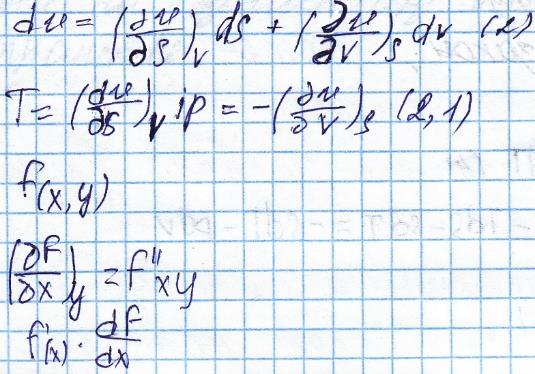 du = (∂u/∂S)_V dS + (∂u/∂V)_S dV (2)
T = (du/∂S)_V ; p = -(∂u/∂V)_S (2,1)
f(x,y)
(∂f/∂x)_y = f''xy
f'(x) · df/dx